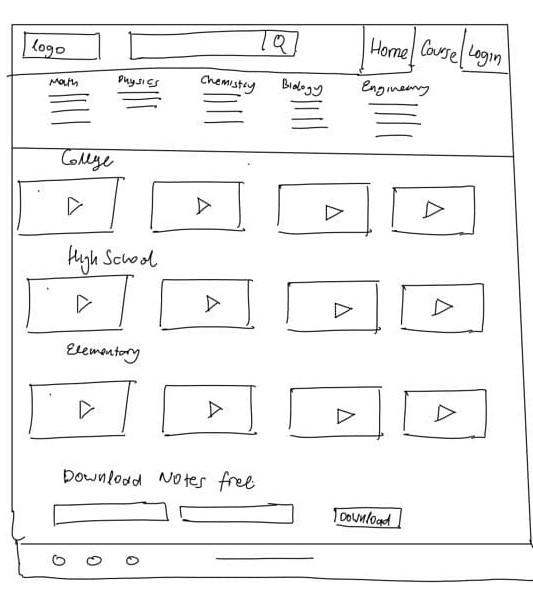 logo Q Home Course Login
Math Physics Chemistry Biology Engineering
College
High School
Elementary
Download Notes free
Download